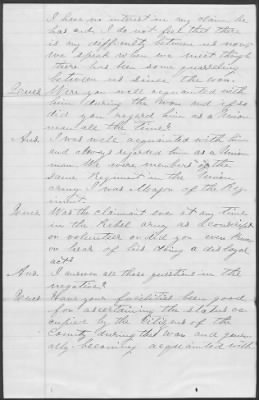 I have no interest in my claim he
has and I do not feel that there
is any difficulty between us now
we speak when we meet though
there has been some quarreling
between us since the war.
Ques Were you well acquainted with
him during the war and if so
did you regard him as a Union
man all the time?
Ans. I was well acquainted with him
and always regarded him as a Union
man. We were members of the
same Regiment in the Union
army. I was Major of the Reg-
iment.
Ques Was the claimant ever at any time
in the Rebel army as a conscript
or volunteer or did you ever know
or hear of his doing a disloyal
act?
Ans I answer all these questions in the
negative.
Ques Have your facilities been good
for ascertaining the status oc-
cupied by the Citizens of the
County during the war and gener-
ally becoming acquainted with